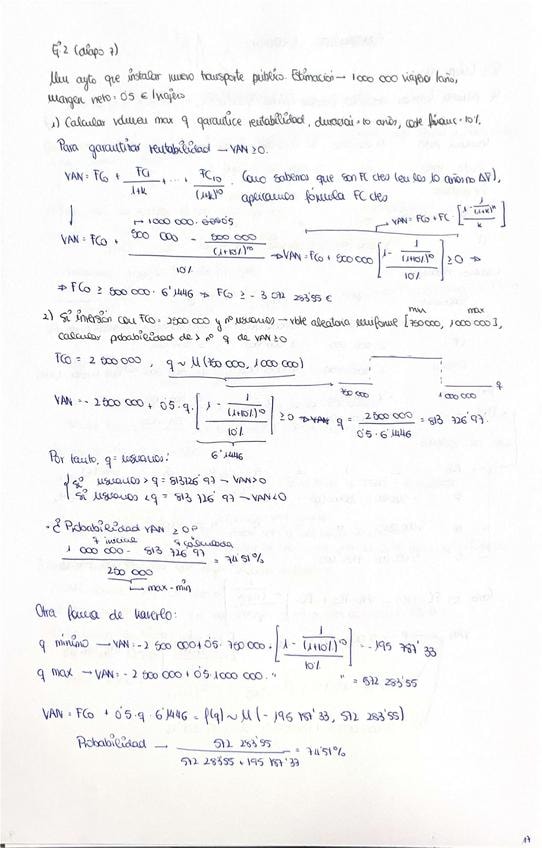 Ej 2 (diapo 7)
Un ayto que instalar nuevo transporte público. Estimación → 1000 000 viajeros/año,
margen neto = 0'5 €/viajero
1) Calcular volumen max q garantice rentabilidad, duración = 10 años, coste financ = 10%.
Para garantizar rentabilidad → VAN ≥ 0.
VAN = FC0 + FC1/(1+k) + ... + FC10/(1+k)^10. Como sabemos que son FC ctes
aplicamos fórmula FC ctes
VAN = FC0 + FC · [(1 - 1/(1+k)^n)/k]
1000 000 · 0'5
VAN = FC0 + (500 000 - 500 000/(1+10%)^10)/10% → VAN = FC0 + 500 000 [(1 - 1/(1+10%)^10)/10%] ≥ 0 ⇒
⇒ FC0 ≥ 500 000 · 6'1446 ⇒ FC0 ≥ - 3 072 283'55 €
2) Si inversión con FC0 = 2500 000 y nº usuarios → vble aleatoria uniforme [750000, 1000 000],
min max
calcular probabilidad de nº q de VAN ≥ 0
FC0 = 2 500 000, q ~ U(750 000, 1000 000)
750 000 1000 000 q
VAN = - 2 500 000 + 0'5 · q · [(1 - 1/(1+10%)^10)/10%] ≥ 0 ⇒ q = 2 500 000/(0'5 · 6'1446) = 813 726'97.
6'1446
Por tanto, q = usuarios:
si usuarios > q = 813726'97 → VAN > 0
si usuarios < q = 813 726'97 → VAN < 0
· ¿Probabilidad VAN ≥ 0?
q calculada
(1 000 000 - 813 726'97)/250 000 = 74'51%
max - min
Otra forma de hacerlo:
q mínimo → VAN = - 2 500 000 + 0'5 · 750 000 · [(1 - 1/(1+10%)^10)/10%] = - 195 787'33
q max → VAN = - 2 500 000 + 0'5 · 1000 000 · " " = 572 283'55
VAN = FC0 + 0'5 · q · 6'1446 = f(q) ~ U(- 195 787'33, 572 283'55)
Probabilidad → 572 283'55/(572 283'55 + 195 787'33) = 74'51%
17